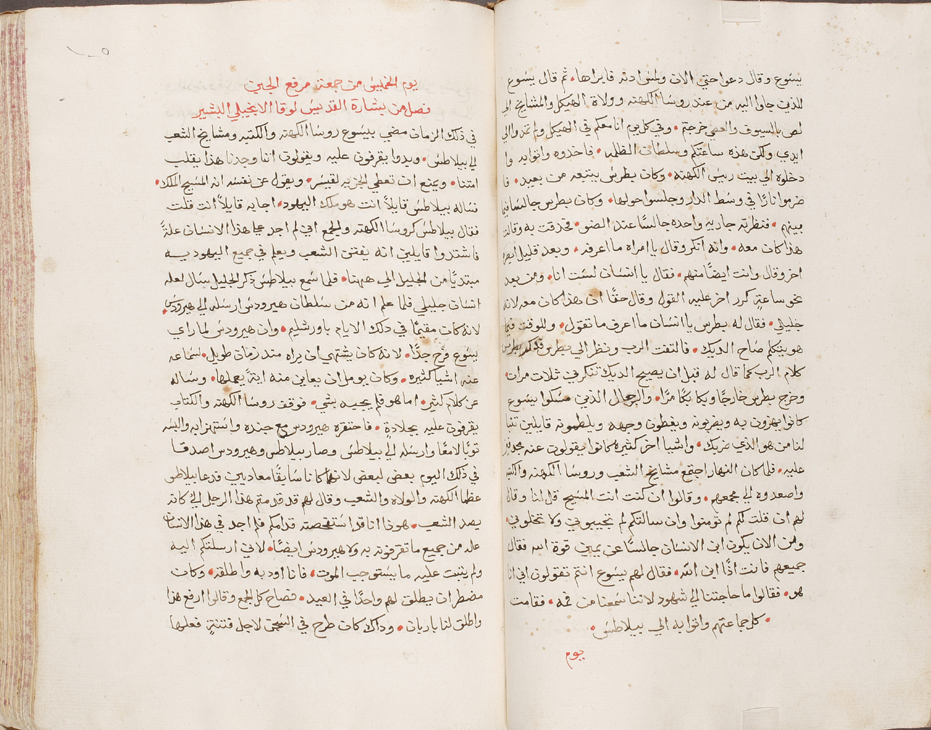 يسوع وقال دعوا حتي الان ولمس ادنه فابراها ثم قال يسوع
للذين جاوا اليه من عند روسا الكهنه وولاة الهيكل والمشايخ الي
لص بالسيوف والعصي خرجتم وفي كل يوم انا معكم في الهيكل ولم تمدوا الي
ايدي ولكن هده ساعتكم وسلطان الظلمه فاخدوه واتوا به وا
دخلوه الي بيت ريس الكهنه وكان بطرس يتبعه من بعيد فا
ضرموا نارًا في وسط الدار وجلسوا حولها وكان بطرس جالسًا
بينهم فنظرته جاريه واحده جالسًا عند الضو فحدقت به وقالت
هذا كان معه وانه انكر وقال يا امراه ما اعرفه وبعد قليل
اخر وقال وانت ايضًا منهم فقال يا انسان لست انا ومن بعد
نحو ساعةٍ كرر اخر عليه القول وقال حقًا ان هذا كان معه لانه
جليلي فقال له بطرس يا انسان ما اعرف ما تقول وللوقت فيما
هو يتكلم صاح الديك فالتفت الرب ونظر الي بطرس
كلام الرب كما قال له قبل ان يصيح الديك تنكرني ثلات مرات
وخرج بطرس خارجًا وبكا بكًا مرًا والرجال الذين مسكوا يسوع
كانوا يهزون به ويضربونه ويغطون وجهه ويلطمونه قايلين تنبا
لنا من هو الذي ضربك واشيا اخر كثيره كانوا يقولون عنه
عليه فلما كان النهار اجتمع مشايخ الشعب وروسا الكهنه والكتبه
واصعدوه الي مجمعهم وقالوا ان كنت انت المسيح قل لنا وقال
لهم ان قلت لكم لم تومنوا وان سالتكم لم تجيبوني ولا تخلوني
ومن الان يكون ابن الانسان جالسًا عن يمين قوة الله فقال
جميعهم فانت اذًا ابن الله فقال لهم يسوع انتم تقولون اني انا
هو فقالوا ما حاجتنا الي شهود لاننا سمعنا من فمه فقامت
كل جماعتهم واتوا به الي بيلاطس
يوم
يوم الخميس من جمعة مرفع الجبن
فصل من بشارة القديس لوقا الانجيلي البشير
في ذلك الزمان مضي بيسوع روسا الكهنه والكتبه ومشايخ الشعب
الي بيلاطس وبدوا يقرفون عليه ويقولون اننا وجدنا هذا يقلب
امتنا ويمنع ان تعطي الجزيه لقيصر ويقول عن نفسه انه المسيح الملك
فساله بيلاطس قايلاً انت هو ملك اليهود اجابه قايلاً انت قلت
فقال بيلاطس لروسا الكهنه والجمع اني لم اجد علي هذا الانسان علةً
فاشتدوا قايلين انه يفتن الشعب ويعلم في جميع اليهوديه
مبتديًا من الجليل الي ههنا فلما سمع بيلاطس ذكر الجليل سال لعله
انسان جليلي فلما علم انه من سلطان هيرودس ارسله الي هيرودس
لانه كان مقيمًا في دلك الايام باورشليم وان هيرودس لما راي
يسوع فرح جدًا لانه كان يشتهي ان يراه مند زمان طويل لسماعه
عنه اشيا كثيره وكان يومل ان يعاين منه ايةً يعملها وساله
عن كلام كثير اما هو فلم يجيبه بشي فوقفت روسا الكهنه والكتاب
يقرفون عليه بجلادةٍ فاحتقره هيرودس مع جنده واستهزا به والبسه
ثوبًا لامعًا وارسله الي بيلاطس وصار بيلاطس وهيرودس اصدقا
في ذلك اليوم بعض لبعض لانهما كانا سابقًا معاديين فدعا بيلاطس
عظما الكهنه والولاه والشعب وقال لهم قد قدمتم هذا الرجل الي كانه
يصد الشعب هوذا انا قد استفحصته قدامكم فلم اجد في هذا الانسان
عله من جميع ما تقرفونه به ولا هيرودس ايضًا لاني ارسلتكم اليه
ولم يثبت عليه ما يستوجب الموت فانا اودبه واطلقه وكان
مضطر ان يطلق لهم واحدًا في العيد فصاح كل الجمع وقالوا ارفع هذا
واطلق لنا باربان وذاك كان طرح في السجن لاجل فتنةٍ فعلها